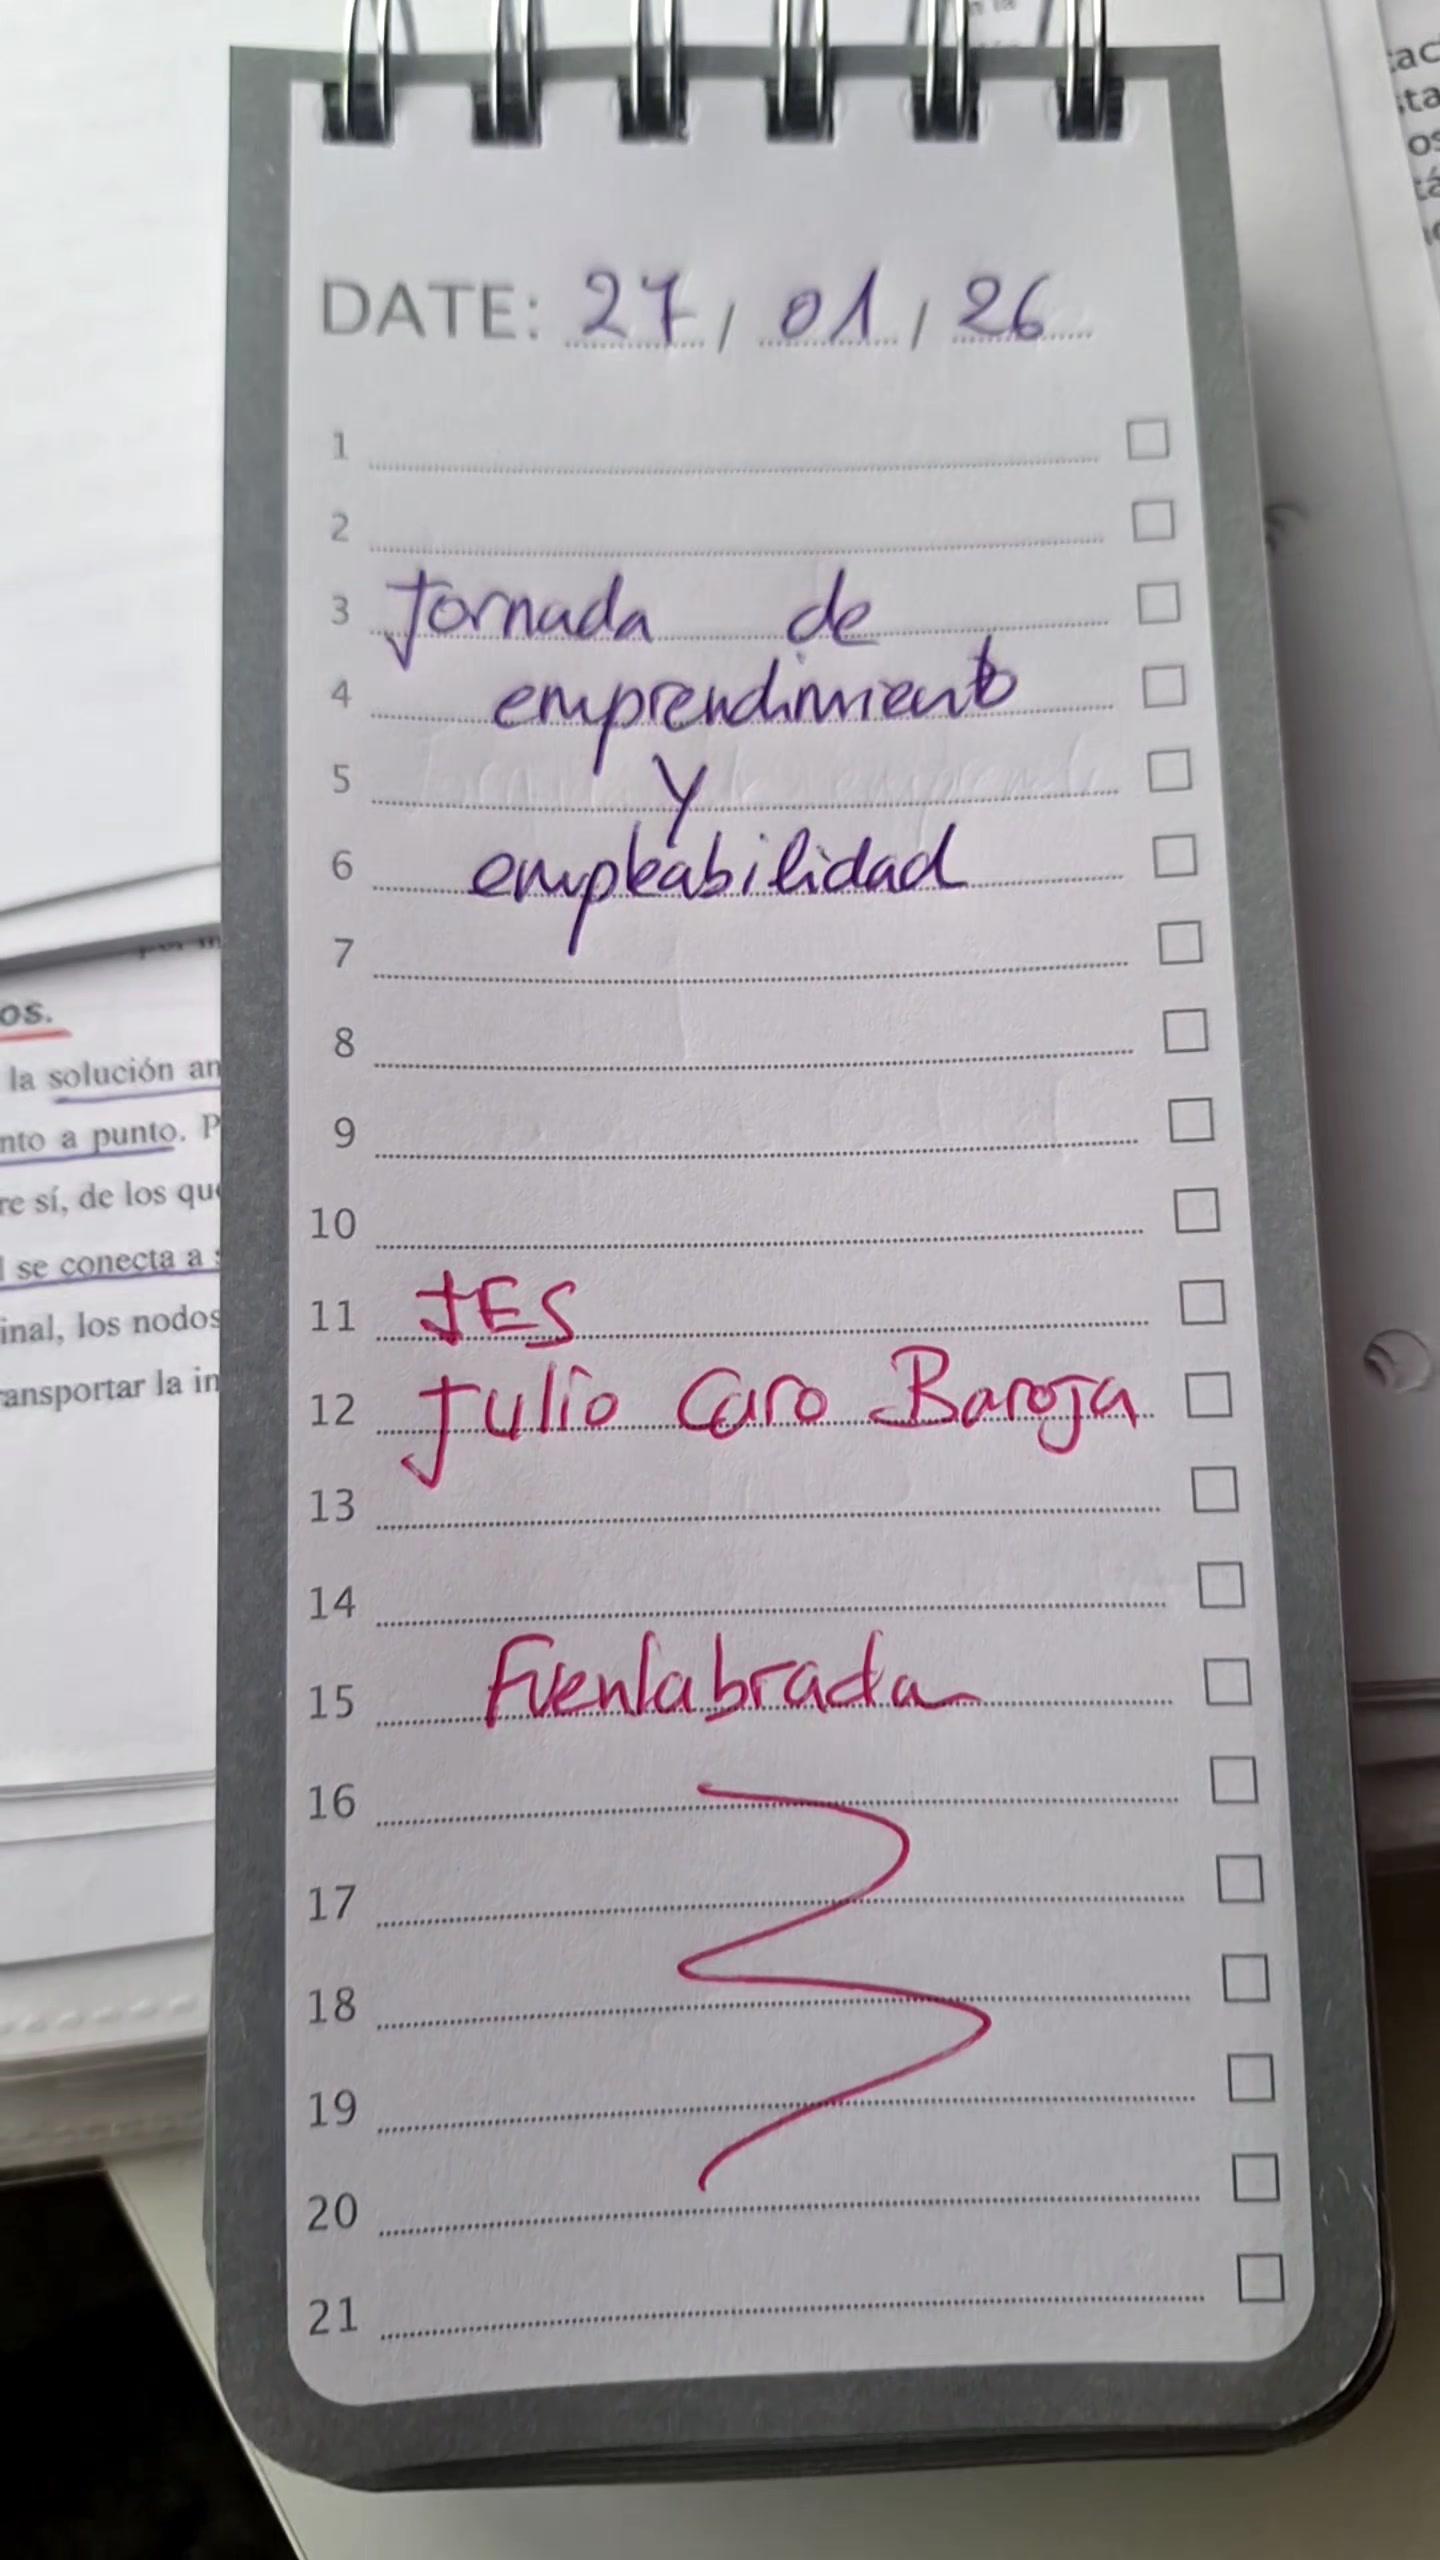 DATE: 27 / 01 / 26
1
2
3 Jornada de
4 emprendimiento
5 y
6 empleabilidad
7
8
9
10
11 IES
12 Julio Caro Baroja
13
14
15 Fuenlabrada
16
17
18
19
20
21
os.
la solución an
nto a punto. P
re sí, de los que
l se conecta a s
inal, los nodos
ransportar la in